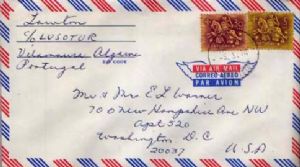 Lawton
c/o LUSOTUR
Vilamoura Algarve
Portugal
ZIP CODE
VIA AIR MAIL
CORREO AEREO
PAR AVION
Mr & Mrs E L Warner
700 New Hampshire Ave NW
Apt 520
Washington D.C
20037 U.S.A